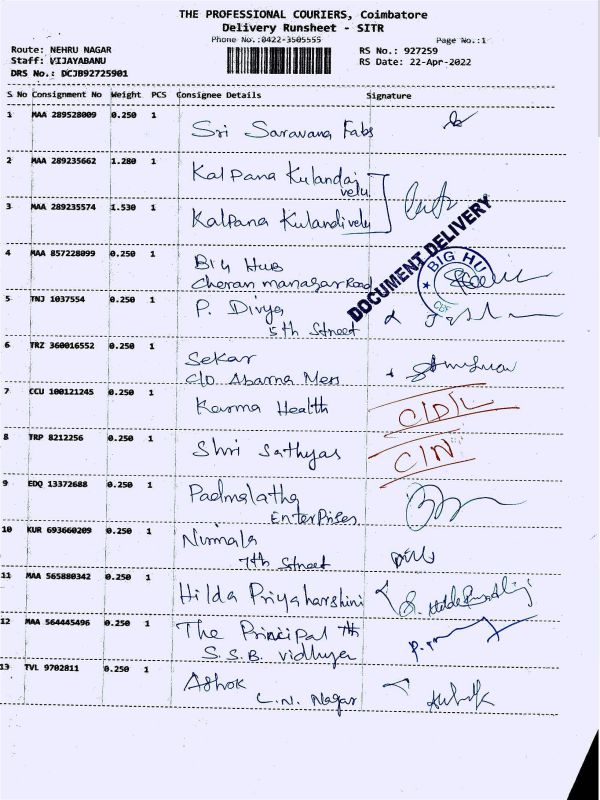 THE PROFESSIONAL COURIERS, Coimbatore
Delivery Runsheet - SITR
Phone No.:0422-3505555
Page No.:1
Route: NEHRU NAGAR
RS No.: 927259
Staff: VIJAYABANU
RS Date: 22-Apr-2022
DRS No.: DCJB92725901
S No Consignment No Weight PCS Consignee Details Signature
1 MAA 289528009 0.250 1 Sri Saravana Fabs
2 MAA 289235662 1.280 1 Kalpana Kulandai
velu
3 MAA 289235574 1.530 1 Kalpana Kulandivelu
4 MAA 857228099 0.250 1 Big Hub
Cheran managar Road
DOCUMENT DELIVERY
BIG HU
5 TNJ 1037554 0.250 1 P. Divya
5th Street
6 TRZ 360016552 0.250 1 Sekar
C/o Abarna Mess
7 CCU 100121245 0.250 1 Karma Health
8 TRP 8212256 0.250 1 Shri Sathyas
C/N
9 EDQ 13372688 0.250 1 Padmalatha
Enterprises
10 KUR 693660209 0.250 1 Nirmala
7th Street
11 MAA 565880342 0.250 1 Hilda Priyaharshini
12 MAA 564445496 0.250 1 The Principal
S.S.B. Vidhya
13 TVL 9702811 0.250 1 Ashok
C.N. Nagar